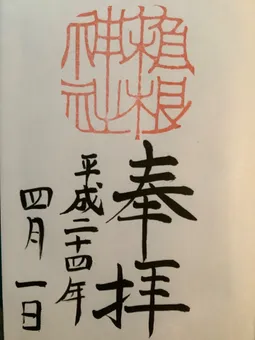 根
神社
奉拝
平成二十四年
四月一日